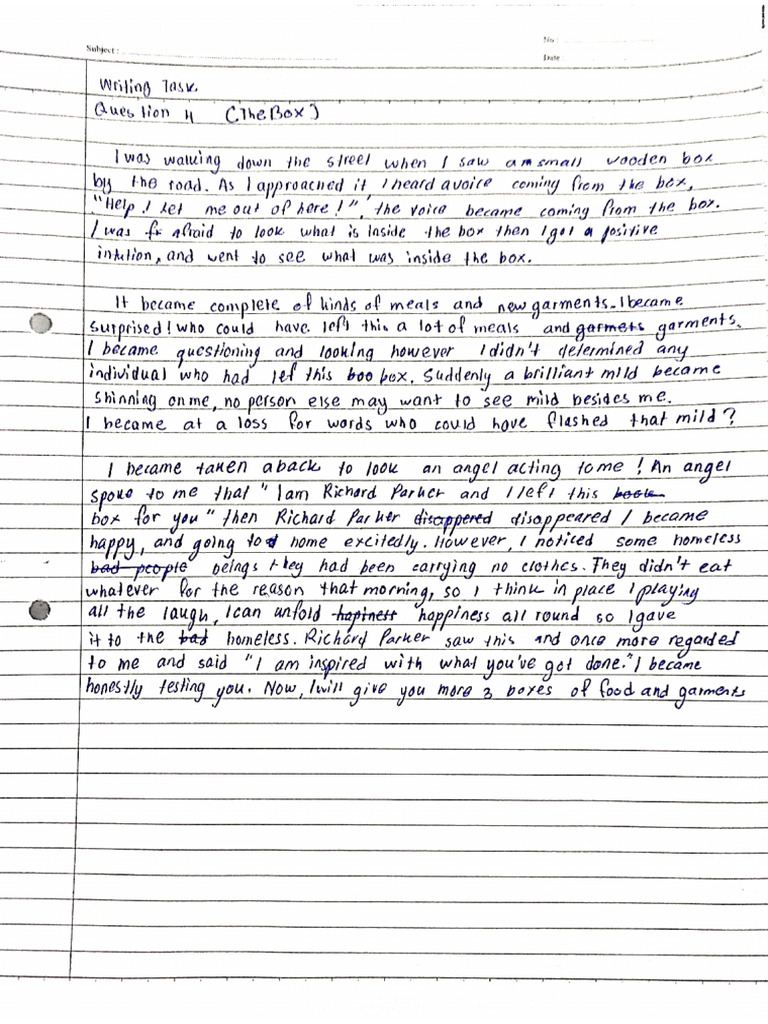 Subject :
No :
Date :
Writing Task.
Question 4 (The Box)
I was walking down the street when I saw a small wooden box
by the road. As I approached it I heard a voice coming from the box,
"Help! Let me out of here!", the voice became coming from the box.
I was afraid to look what is inside the box then I got a positive
intution, and went to see what was inside the box.
It became complete of kinds of meals and new garments. I became
surprised! who could have left this a lot of meals and garmets garments.
I became questioning and looking however I didn't determined any
individual who had lef this boo box. Suddenly a brilliant mild became
shinning on me, no person else may want to see mild besides me.
I became at a loss for words who could have flashed that mild?
I became taken aback to look an angel acting to me! An angel
spoke to me that "I am Richard Parker and I left this book
box for you" then Richard Parker disappered disappeared I became
happy, and going to home excitedly. However, I noticed some homeless
bad people beings they had been carrying no clothes. They didn't eat
whatever for the reason that morning, so I think in place I playing
all the laugh, I can unfold hapiness happiness all round so I gave
it to the bad homeless. Richard Parker saw this and once more regarded
to me and said "I am inspired with what you've got done." I became
honestly testing you. Now, I will give you more 3 boxes of food and garments